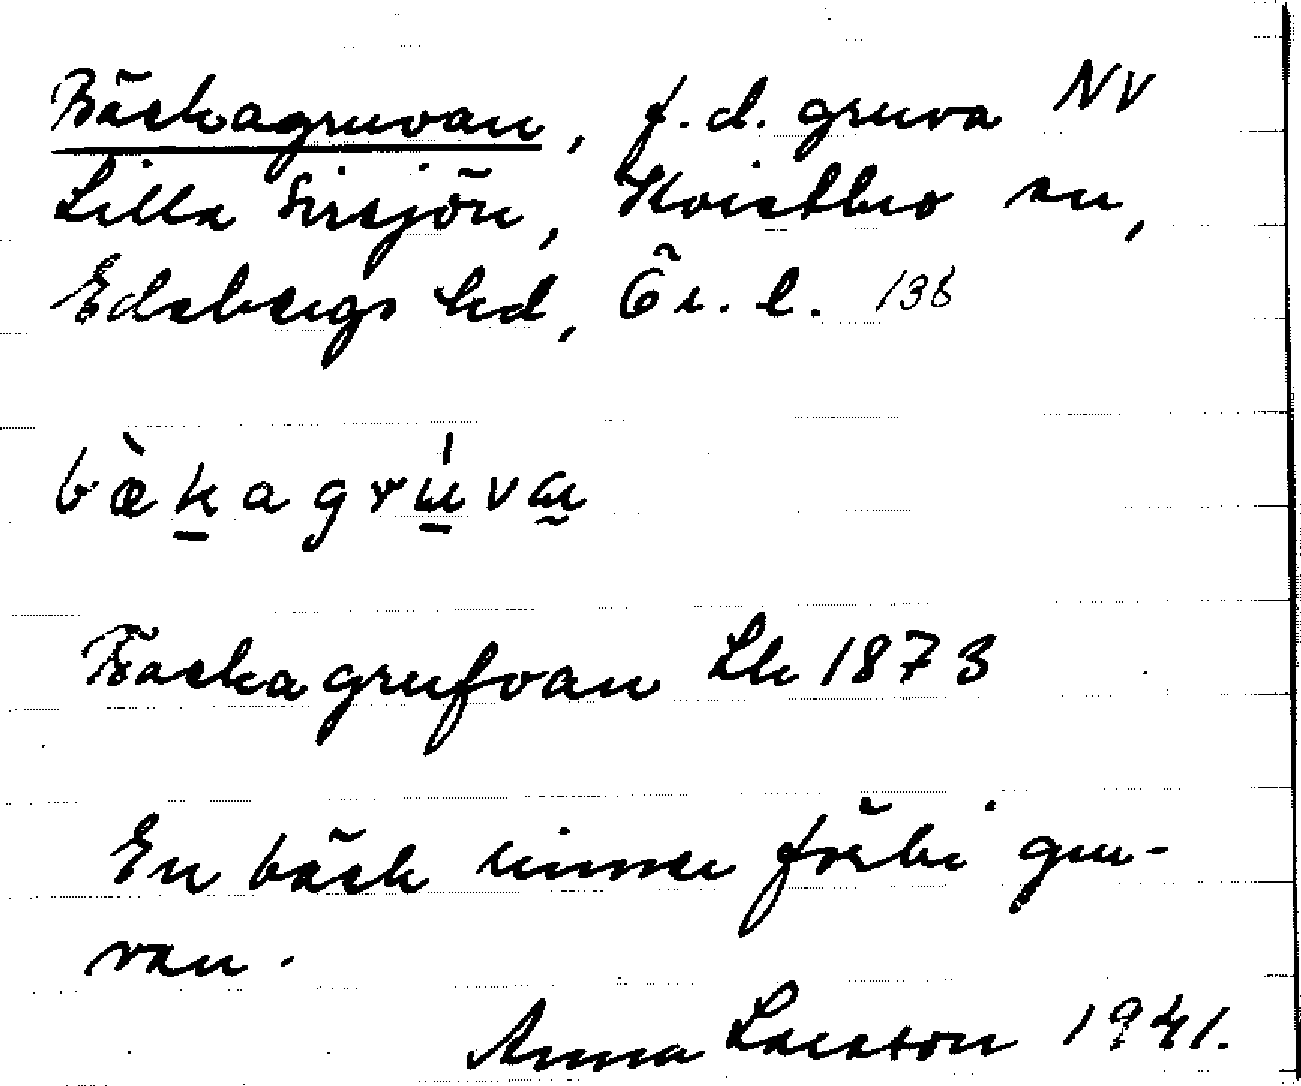 Bäckagruvan, f.d. gruva NV
Lilla Sirsjön, Kvistbro sn,
Edsbergs hd, Ör. l. 136
bæ̀kagrúvan
Backagrufvan Lk 1873
En bäck rinner förbi gru-
van.
Anna Larsson 1941.